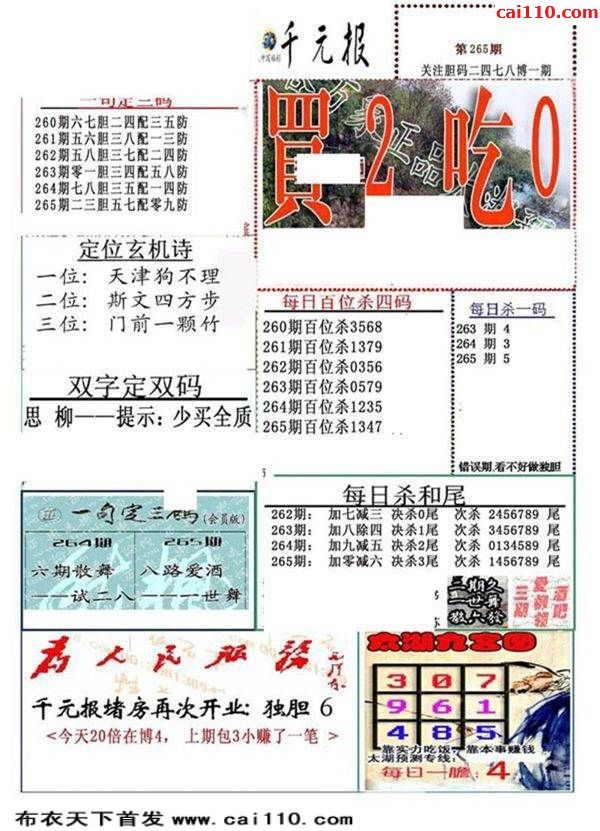 cai110.com
千元报
第265期
关注胆码二四七八博一期
一句定三码
260期六七胆二四配三五防
261期五六胆三八配一三防
262期五八胆三七配二四防
263期零一胆三四配五八防
264期七八胆三五配一四防
265期二三胆五七配零九防
買2吃0
定位玄机诗
一位: 天津狗不理
二位: 斯文四方步
三位: 门前一颗竹
每日百位杀四码
260期百位杀3568
261期百位杀1379
262期百位杀0356
263期百位杀0579
264期百位杀1235
265期百位杀1347
每日杀一码
263 期 4
264 期 3
265 期 5
错误期.看不好做独胆
双字定双码
思 柳——提示: 少买全质
一句定三码(会员版)
264期 265期
六期散舞 八路爱酒
——试二八 ——一世舞
每日杀和尾
262期: 加七减三 决杀0尾 次杀 2456789 尾
263期: 加八除四 决杀1尾 次杀 3456789 尾
264期: 加九减五 决杀2尾 次杀 0134589 尾
265期: 加零减六 决杀3尾 次杀 1456789 尾
为人民服务
千元报堵房再次开业: 独胆 6
<今天20倍在博4, 上期包3小赚了一笔 >
太湖九宫图
3 0 7
9 6 1
4 8 5
靠实力吃饭: 靠本事赚钱
太湖预测专线:
每日一胆: 4
布衣天下首发 www.cai110.com